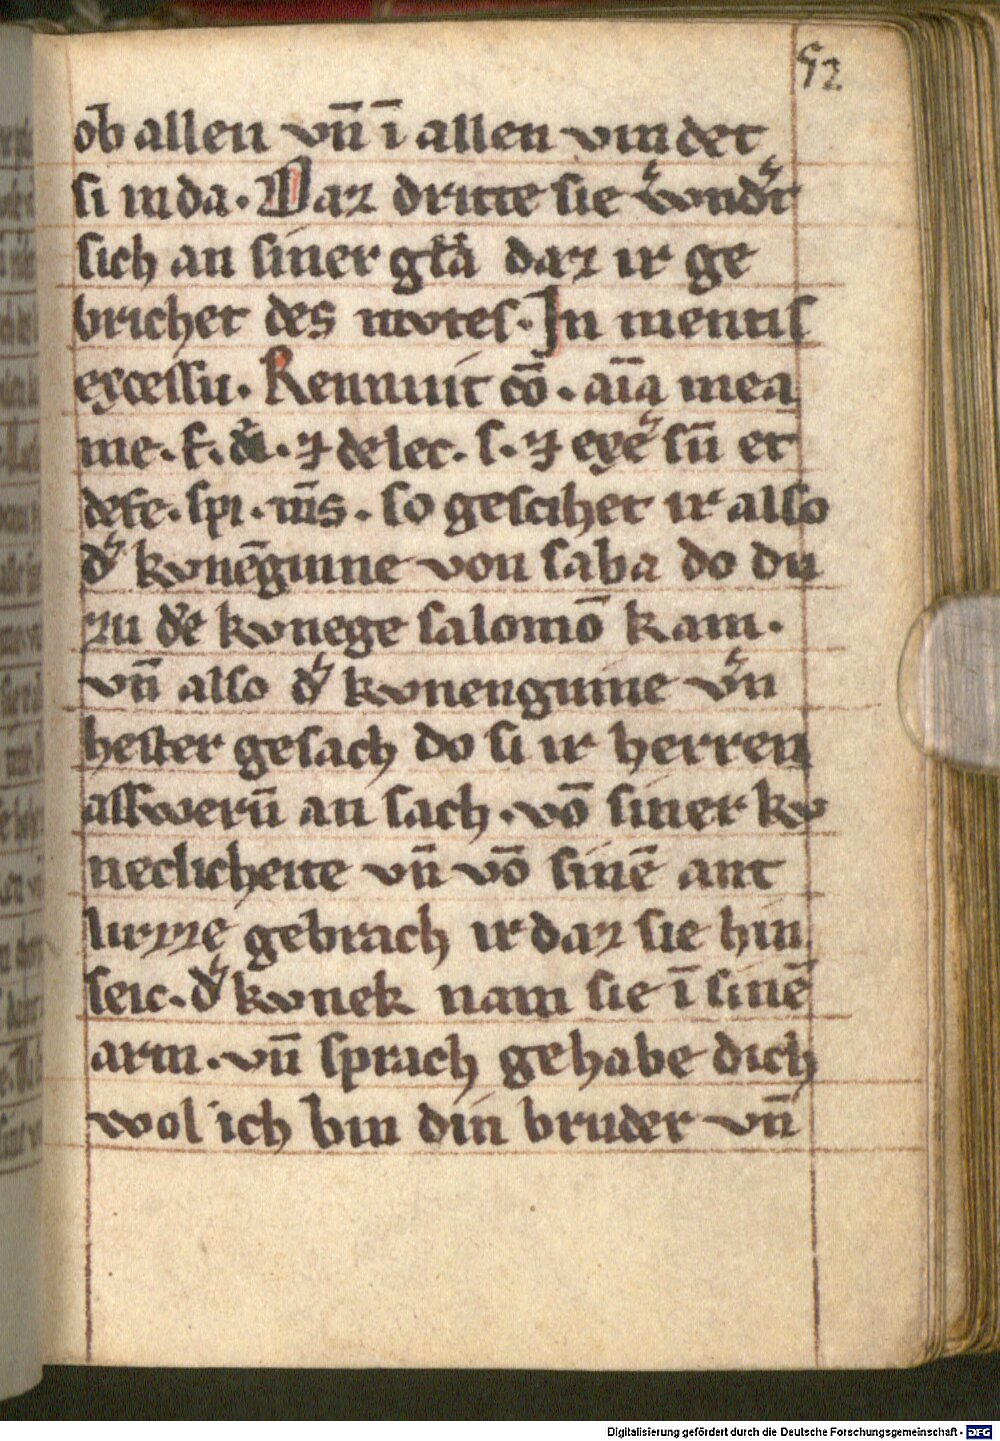 52
ob allen vn̄ ī allen vindet
si in da. Daz dritte sie v͛wnd͛t
sich an siner gl̄a daz ir ge
brichet des mvtes. In mentis
excessu. Rennuit cō. aīa mea
me. f. d͛i. ⁊ delec. s. ⁊ exe͛ sū et
defe. spi. m̄s. so gescihet ir also
d͛ kvnēginne von saba do du
zu dē kvnege salomō kam.
vn̄ also d͛ kvnenginne v͛n
hester gesach do si ir herren
asswerū an sach. vō siner kv
neclicheite vn̄ vō sinē ant
lutzze gebrach ir daz sie hin
seic. d͛ kvnek nam sie ī sinē
arm. vn̄ sprach gehabe dich
wol ich bin din bruder vn̄
Digitalisierung gefördert durch die Deutsche Forschungsgemeinschaft - DFG